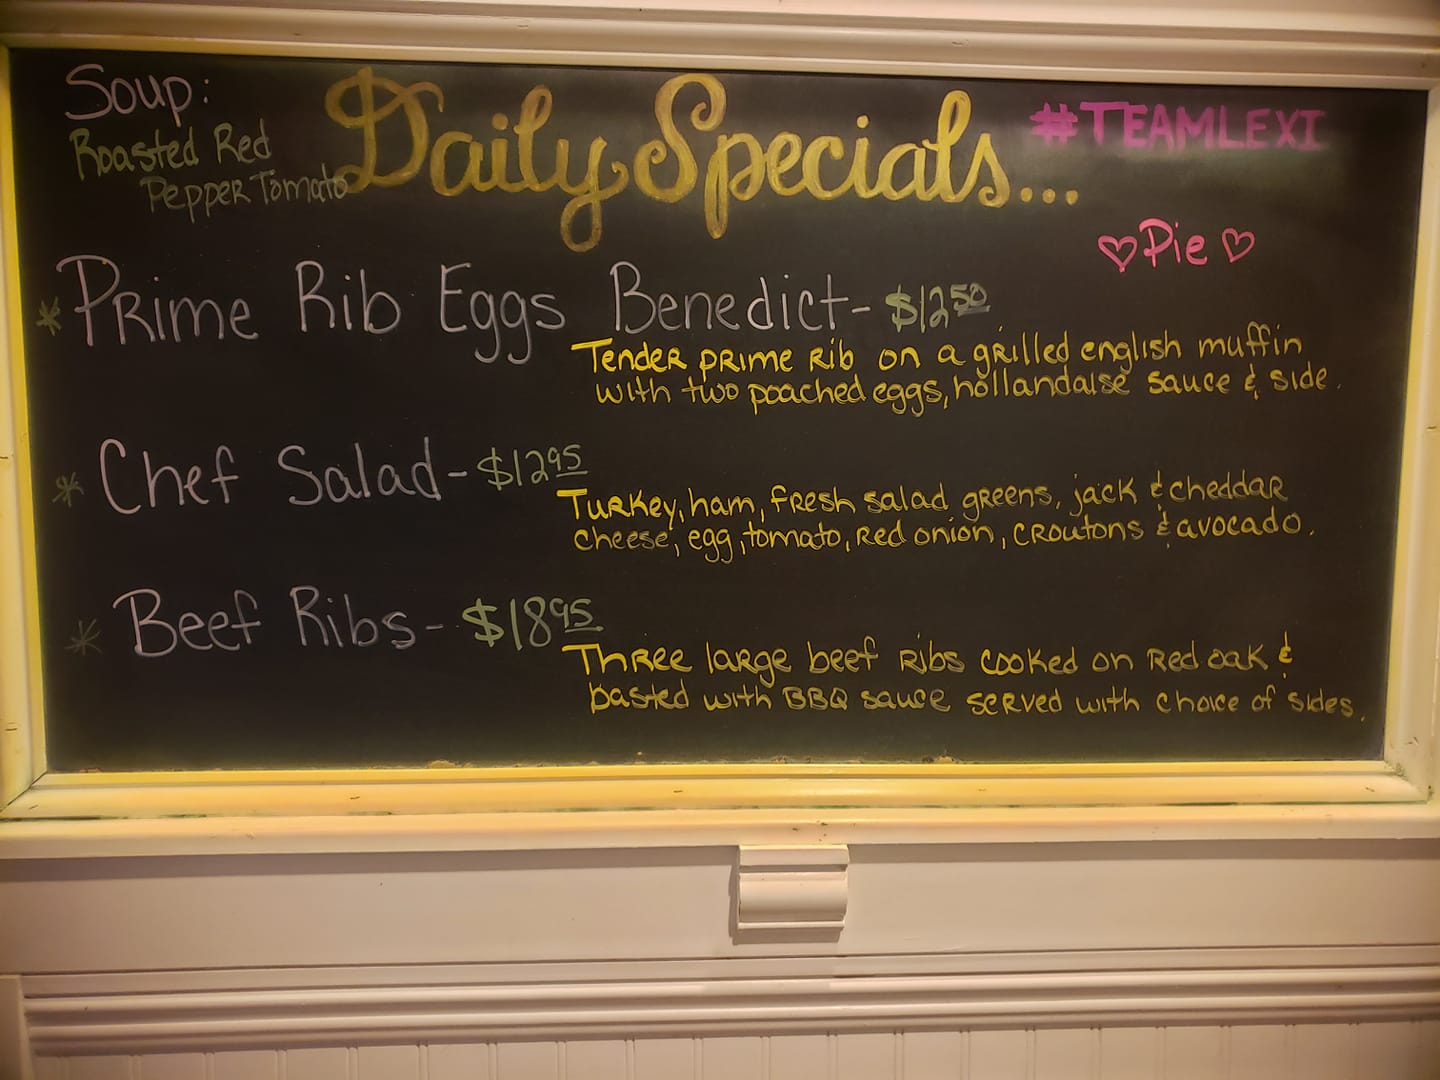 Soup:
Roasted Red
Pepper Tomato
Daily Specials...
#TEAMLEXI
♡Pie♡
* Prime Rib Eggs Benedict- $12.50
Tender prime rib on a grilled english muffin
with two poached eggs, hollandaise sauce & side.
* Chef Salad- $12.95
Turkey, ham, fresh salad greens, jack & cheddar
cheese, egg, tomato, red onion, croutons & avocado.
* Beef Ribs- $18.95
Three large beef ribs cooked on red oak &
basted with BBQ sauce served with choice of sides.